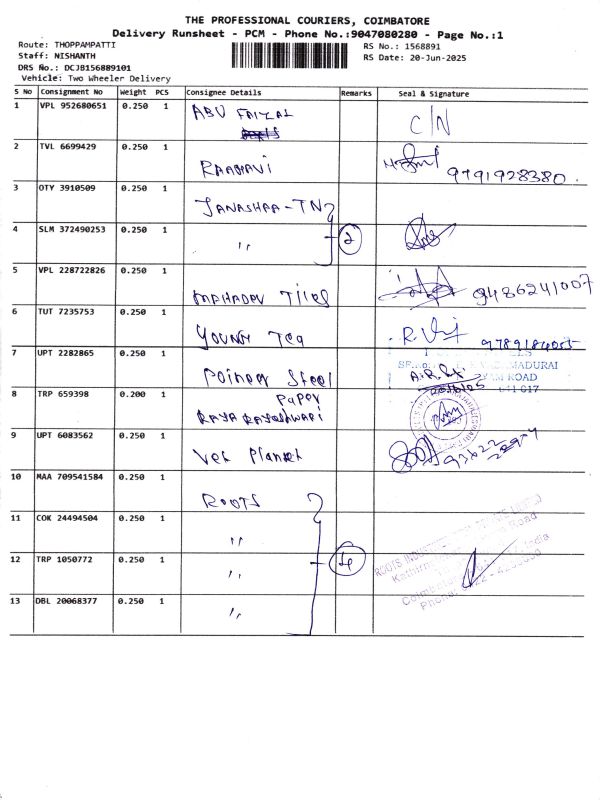 THE PROFESSIONAL COURIERS, COIMBATORE
Delivery Runsheet - PCM - Phone No.:9047080280 - Page No.:1
Route: THOPPAMPATTI
RS No.: 1568891
Staff: NISHANTH
RS Date: 20-Jun-2025
DRS No.: DCJB156889101
Vehicle: Two Wheeler Delivery
S No Consignment No Weight PCS Consignee Details Remarks Seal & Signature
1 VPL 952680651 0.250 1 ABU FAIZAL C/N
2 TVL 6699429 0.250 1 RAAGAVI 9791928380
3 OTY 3910509 0.250 1 JANASHAA-TN
4 SLM 372490253 0.250 1 〃 2
5 VPL 228722826 0.250 1 MAHADEV Tiles 9486241007
6 TUT 7235753 0.250 1 YOUNG Tea 9789184055
7 UPT 2282865 0.250 1 Poineer Steel
MADURAI
ROAD
641 017
8 TRP 659398 0.200 1 Paper
RAYA RAYESHWARI
9 UPT 6083562 0.250 1 Vet Planet
10 MAA 709541584 0.250 1 ROOTS
11 COK 24494504 0.250 1 〃
12 TRP 1050772 0.250 1 〃 4
13 DBL 20068377 0.250 1 〃
ROOTS
Road
India
Phone: 0422 -